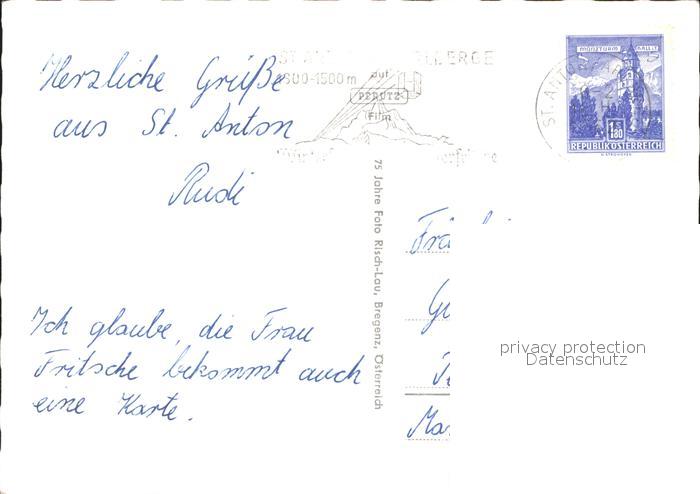 Herzliche Grüße
aus St. Anton
Rudi
Ich glaube, die Frau
Fritsche bekommt auch
eine Karte.
600-1500 m auf
PERUTZ
Film
75 Jahre Foto Risch-Lau, Bregenz, Österreich
MÜNZTURM HALL I.T.
S 1.80
REPUBLIK ÖSTERREICH
ST. ANTON
privacy protection
Datenschutz